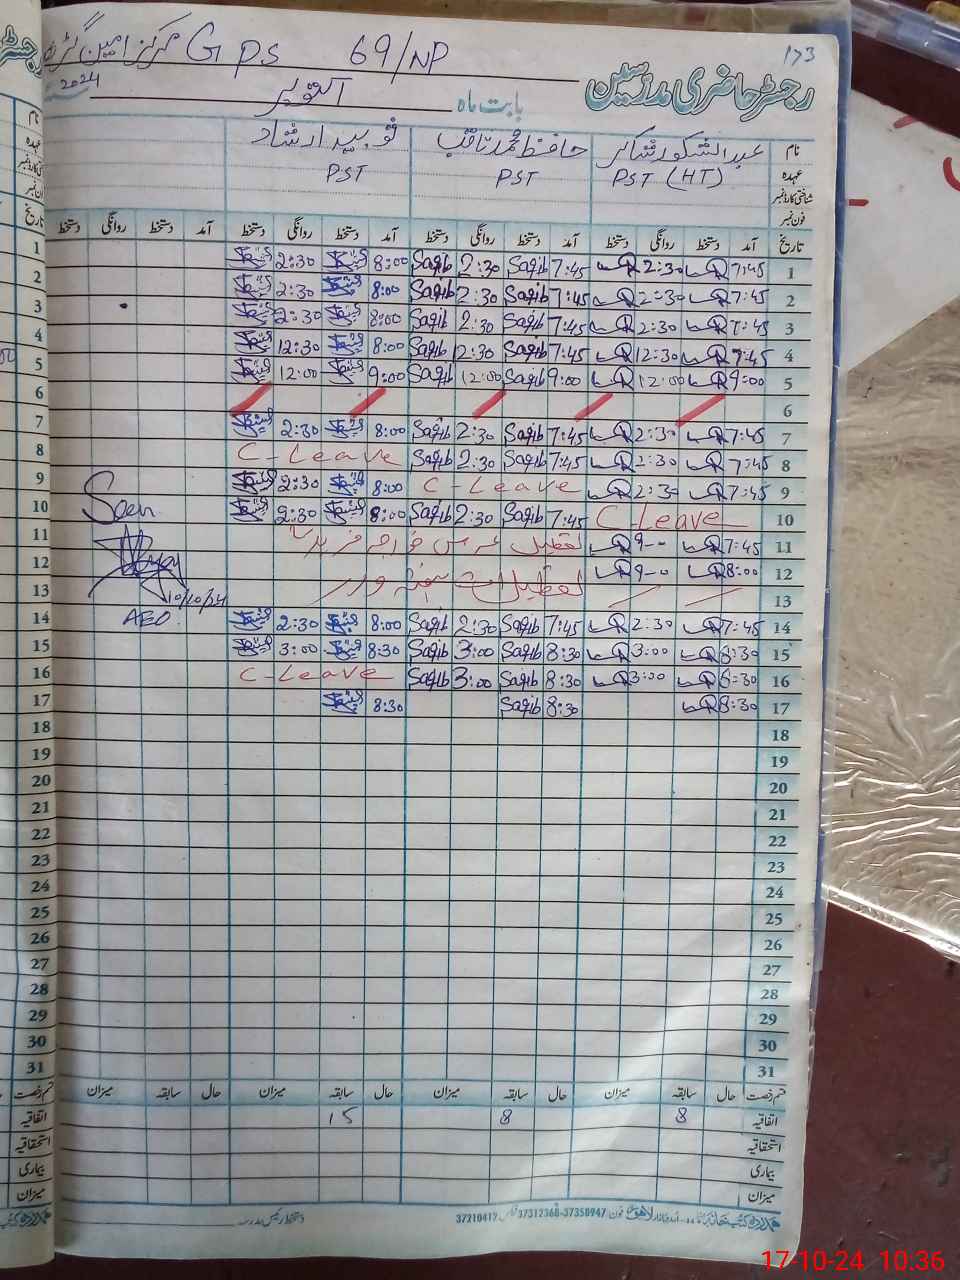 173
مرکز امین گڑھ Gps 69/NP
رجسٹر حاضری مدرسین
بابت ماہ اکتوبر 2024
نام عبدالشکور شاکر حافظ محمد ثاقب نوید ارشاد
عہدہ PST (HT) PST PST
شناختی کارڈ نمبر
فون نمبر
تاریخ آمد دستخط روانگی دستخط آمد دستخط روانگی دستخط آمد دستخط روانگی دستخط آمد دستخط روانگی دستخط تاریخ
1 7:45 2:30 7:45 Saqib 2:30 Saqib 8:00 2:30 1
2 7:45 2:30 7:45 Saqib 2:30 Saqib 8:00 2:30 2
3 7:45 2:30 7:45 Saqib 2:30 Saqib 8:00 2:30 3
4 7:45 12:30 7:45 Saqib 12:30 Saqib 8:00 12:30 4
5 9:00 12:00 9:00 Saqib 12:00 Saqib 9:00 12:00 5
6 6
7 7:45 2:30 7:45 Saqib 2:30 Saqib 8:00 2:30 7
8 7:45 2:30 7:45 Saqib 2:30 Saqib C-Leave 8
9 7:45 2:30 C-Leave 8:00 2:30 9
10 C-Leave 7:45 Saqib 2:30 Saqib 8:00 2:30 10
Seen
11 7:45 9-- تعطیل عرس خواجہ فرید 11
12 8:00 9-0 تعطیلات 12
13 13
10/10/24
AEO
14 7:45 2:30 7:45 Saqib 2:30 Saqib 8:00 2:30 14
15 8:30 3:00 8:30 Saqib 3:00 Saqib 8:30 3:00 15
16 8:30 3:00 8:30 Saqib 3:00 Saqib C-Leave 16
17 8:30 8:30 Saqib 8:30 17
18 18
19 19
20 20
21 21
22 22
23 23
24 24
25 25
26 26
27 27
28 28
29 29
30 30
31 31
قسم رخصت حال سابقہ میزان حال سابقہ میزان حال سابقہ میزان حال سابقہ میزان قسم رخصت
اتفاقیہ 8 8 15 اتفاقیہ
استحقاقیہ استحقاقیہ
بیماری بیماری
میزان میزان
ہمدرد کتب خانہ لاہور فون 37350947-37312368 فیکس 37210412 دستخط رئیس مدرسہ
17-10-24 10:36